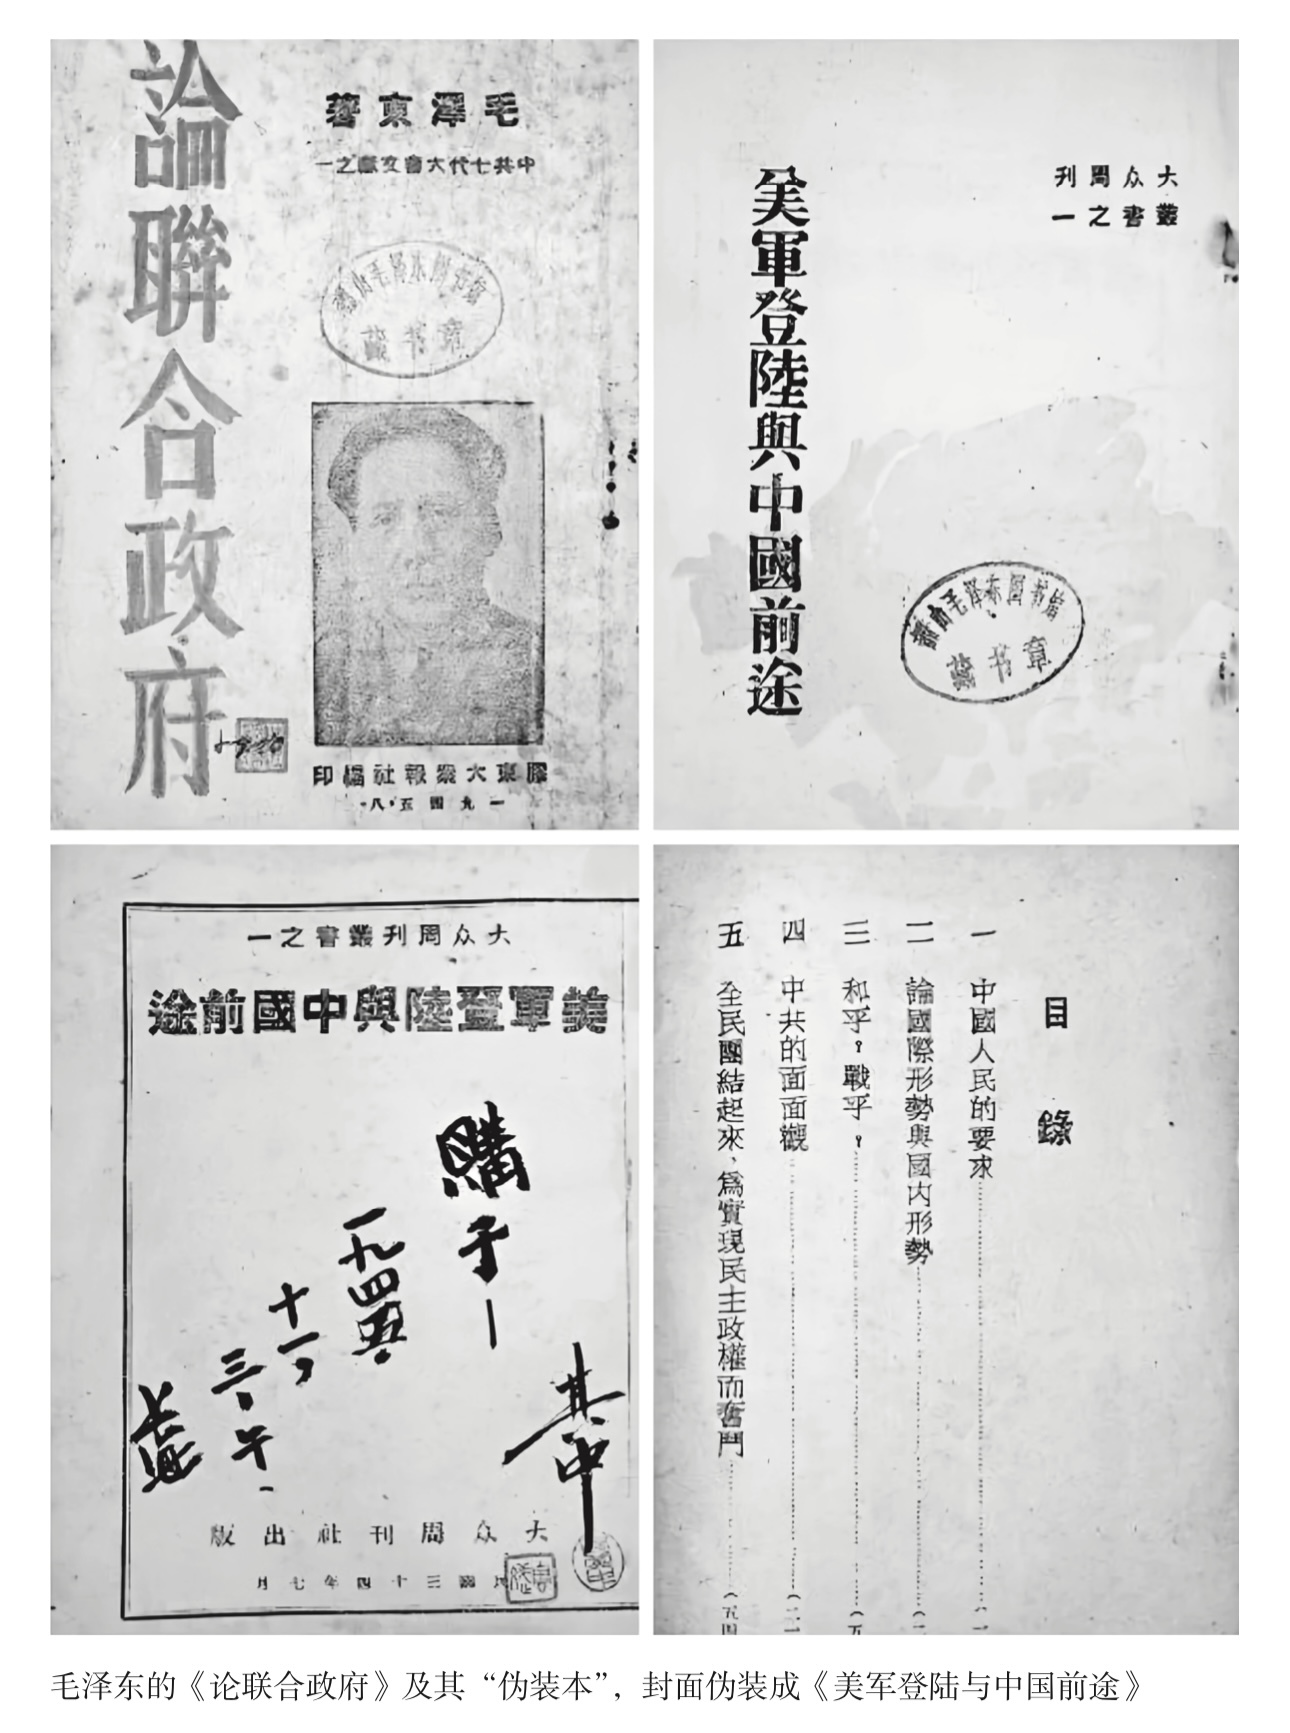 論聯合政府
毛澤東著
中共七代大會文獻之一
韶山毛澤东图书馆
藏书章
膠東大衆報社編印
一九四五·八·
大众周刊
叢書之一
美軍登陸與中國前途
韶山毛泽东图书馆
藏书章
大众周刊叢書之一
美軍登陸與中國前途
購于
一九四五·
十一,
三·午·
其中
大众周刊社出版
民國三十四年七月
目錄
一 中國人民的要求……(一
二 論國際形勢與國内形勢……(二
三 和乎?戰乎?……(五
四 中共的面面觀……(二一
五 全民團結起來,爲實現民主政權而奮鬥……(五四
毛泽东的《论联合政府》及其“伪装本”,封面伪装成《美军登陆与中国前途》